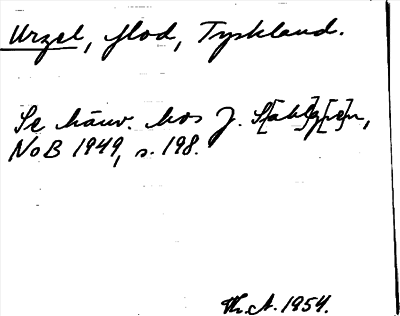 Urzel, flod, Tyskland.
Se hänv. hos J. S[ahl]g[re]n,
NoB 1949, s. 198.
Th. A. 1954.